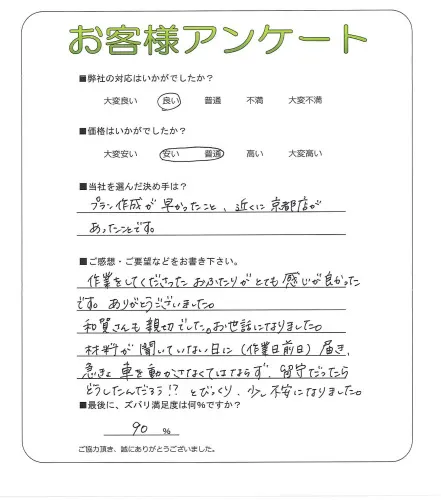 お客様アンケート
■弊社の対応はいかがでしたか？
大変良い 良い 普通 不満 大変不満
■価格はいかがでしたか？
大変安い 安い 普通 高い 大変高い
■当社を選んだ決め手は？
プラン作成が早かったこと、近くに京都店が
あったことです。
■ご感想・ご要望などをお書き下さい。
作業をしてくださったおふたりがとても感じが良かった
です。ありがとうございました。
和賀さんも親切でした。お世話になりました。
材料が聞いていない日に（作業日前日）届き、
急きょ車を動かさなくてはならず、留守だったら
どうしたんだろう!?とびっくり、少し不安になりました。
■最後に、ズバリ満足度は何％ですか？
90 ％
ご協力頂き、誠にありがとうございました。